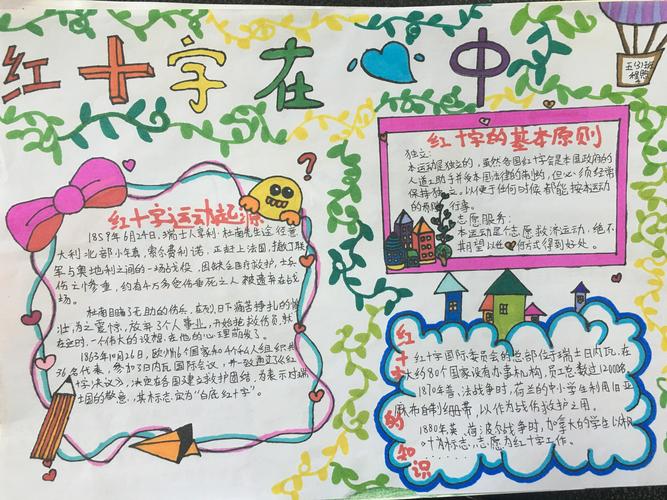 红十字在心中
五(3)班
红十字运动起源
1859年6月24日,瑞士人亨利·杜南先生途经意
大利北部小车嘉,索尔费利诺,正赶上法国、撒丁联
军与奥地利之间的一场战役,因缺乏医疗救护,士兵
伤亡惨重,约有4万多受伤垂死之人被遗弃在战
场。
杜南目睹了无助的伤兵,在烈日下痛苦挣扎的
为之震惊,放弃了个人事业,开始抢救伤员,就
在这时,一个伟大的设想,在他的心理萌发了。
1863年10月26日,欧洲16个国家和4个私人组织共
36名代表,参加3日内瓦国际会议,并一致通过了《红
十字决议》,决定在各国建立救护团结,为表示对瑞
士国的敬意,其标志定为“白底红十字”。
红十字的基本原则
独立:
本运动是独立的,虽然各国红十字会是本国政府的
人道工助手并受本国法律的制约,但必须经常
保持独立,以便于任何时候都能按本运动
的 行事。
志愿服务:
本运动是个志愿救济运动,绝不
期望以任何方式得到好处。
红十字的知识
红十字国际委员会的总部位于瑞士日内瓦,在
大约80个国家设有办事机构,员工总数过12000名。
1870年普、法战争时,荷兰的中小学生利用旧亚
麻布自制绷带,以作为战伤救护之用。
1880年英、荷波尔战争时,加拿大的学生以
十为标志,志愿为红十字工作。